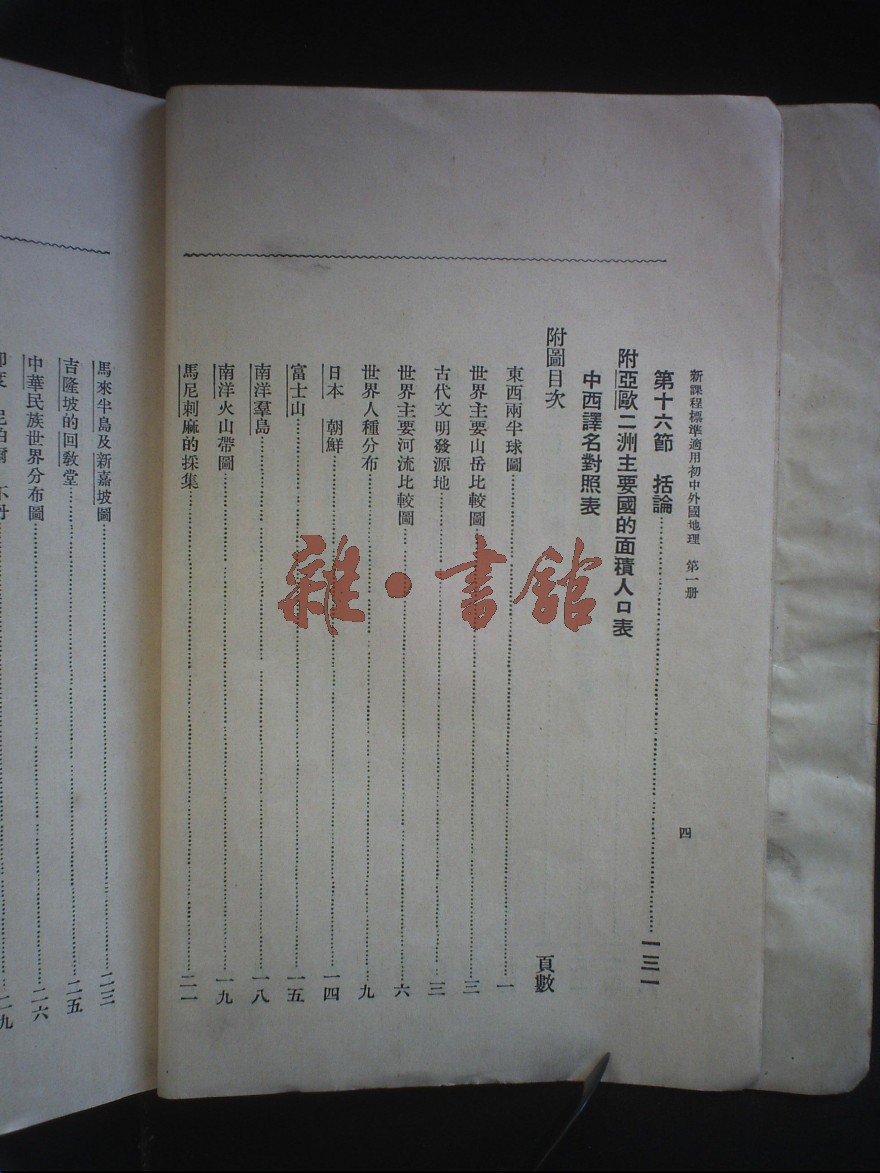 新課程標準適用初中外國地理　第一册
四
第十六節　括論……一三一
附亞歐二洲主要國的面積人口表
中西譯名對照表
附圖目次
頁數
東西兩半球圖……一
世界主要山岳比較圖……三
古代文明發源地……三
世界主要河流比較圖……六
世界人種分布……九
日本　朝鮮……一四
富士山……一五
南洋羣島……一八
南洋火山帶圖……一九
馬尼剌麻的採集……二一
馬來半島及新嘉坡圖……二三
吉隆坡的回敎堂……二五
中華民族世界分布圖……二六
印度　尼泊爾　不丹……二九
雜·書館